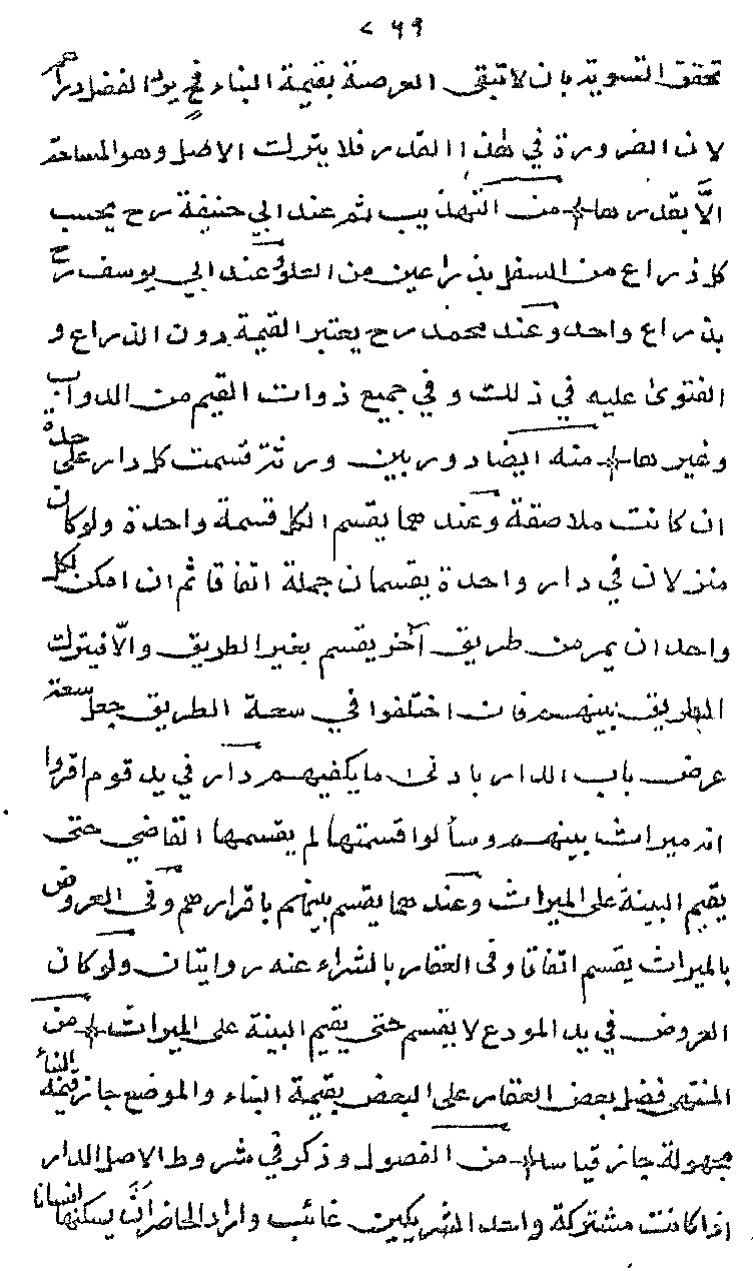 ٢٦٩
تحقق التسوية بان لا تبقى العرصة بقيمة البناء فح يرد الفضل دراهم
لان الضرورة في هذا القدر فلا يترك الاصل وهو المساحة
الّا بقدرها من التهذيب ثم عند ابي حنيفة رح يحسب
كل ذراع من السفل بذراعين من العلو وعند ابي يوسف رح
بذراع واحد وعند محمد رح يعتبر القيمة دون الذراع و
الفتوى عليه في ذلك وفي جميع ذوات القيم من الدواب
وغيرها منه ايضا دور بين ورثة قسمت كل دار على حدة
ان كانت ملاصقة وعندهما يقسم الكل قسمة واحدة ولو كان
منزلان في دار واحدة يقسمان جملة اتفاقا ثم ان امكن لكل
واحد ان يمر من طريق آخر يقسم بغير الطريق والّا فيترك
الطريق بينهم فان اختلفوا في سعة الطريق جعل سعته
عرض باب الدار بادنى ما يكفيهم دار في يد قوم اقروا
انه ميراث بينهم وسألوا قسمتها لم يقسمها القاضي حتى
يقيم البينة على الميراث وعندهما يقسم بينهم باقرارهم وفى العروض
بالميراث يقسم اتفاقا وفى العقار بالشراء عنه روايتان ولو كان
العروض في يد المودع لا يقسم حتى يقيم البينة على الميراث من
المنتهى فضل بعض العقار على البعض بقيمة البناء والموضع جاز قيمة البناء
مجهولة جاز قياسا من الفصول وذكر في شروط الاصل الدار
اذا كانت مشتركة واحد الشريكين غائب واراد الحاضر ان يسكنها انسانا